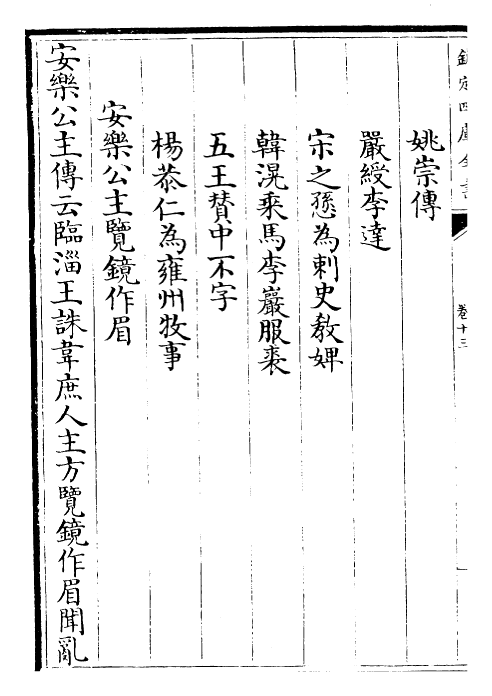 欽定四庫全書
卷十三
姚崇傳
嚴綬李達
宋之愻為刺史教婢
韓滉乘馬李巖服裘
五王賛中不字
楊恭仁為雍州牧事
安樂公主覽鏡作眉
安樂公主傳云臨淄王誅韋庶人主方覽鏡作眉聞亂